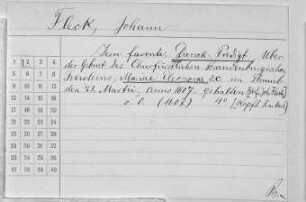 Fleck, Johann
Jesu favente. Danck-Predigt Uber
der Geburt des Churfürstlichen Brandenburgischen
Fräwleins, Mariae Eleonorae &c im Thumb
den 22. Martii, Anno 1607. gehalten
o. O. (1607) 4°
1 2 3 4 5
6 7 8 9 10
11 12 13 14 15
16 17 18 19 20
21 22 23 24 25
26 27 28 29 30
31 32 33 34 35
36 37 38 39 40